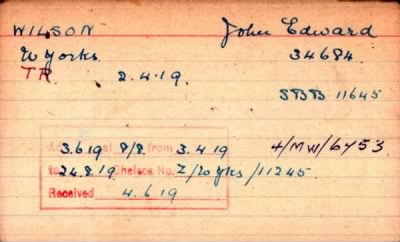 WILSON John Edward
W Yorks. 34684.
TR. 2.4.19.
SBB 11645
3.6.19 8/8. from 3.4.19 4/MW/6453.
to 24.8.19 Chelsea No. Z/W Yks/11245.
Received 4.6.19